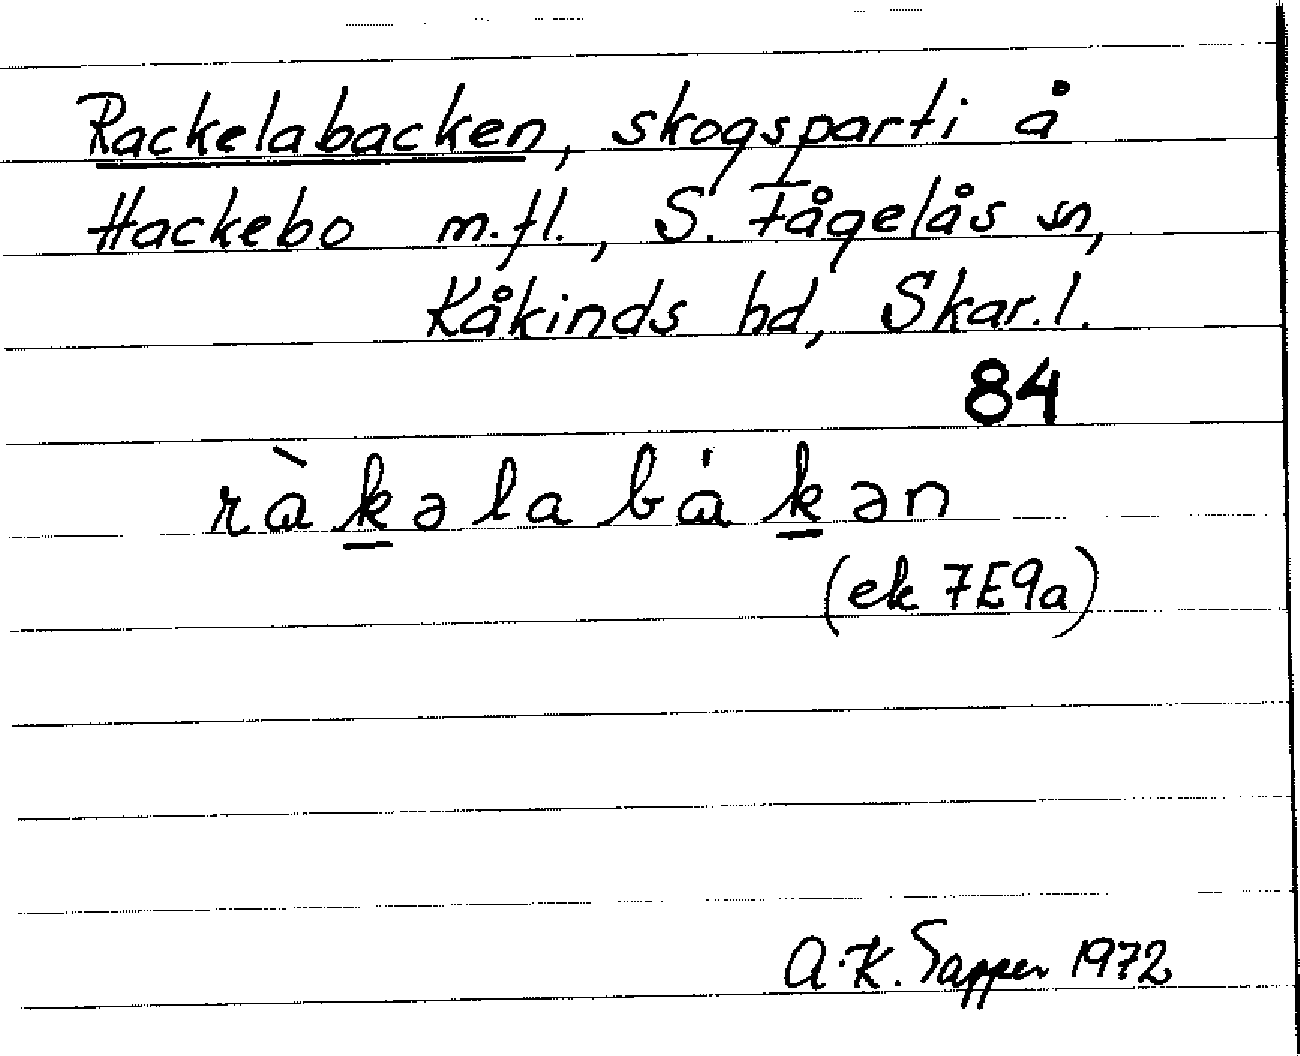 Rackelabacken, skogsparti å
Hackebo m.fl., S. Fågelås sn,
Kåkinds hd, Skar.l.
84
ràkəlabákən
(ek 7E9a)
A.K. Sapper 1972